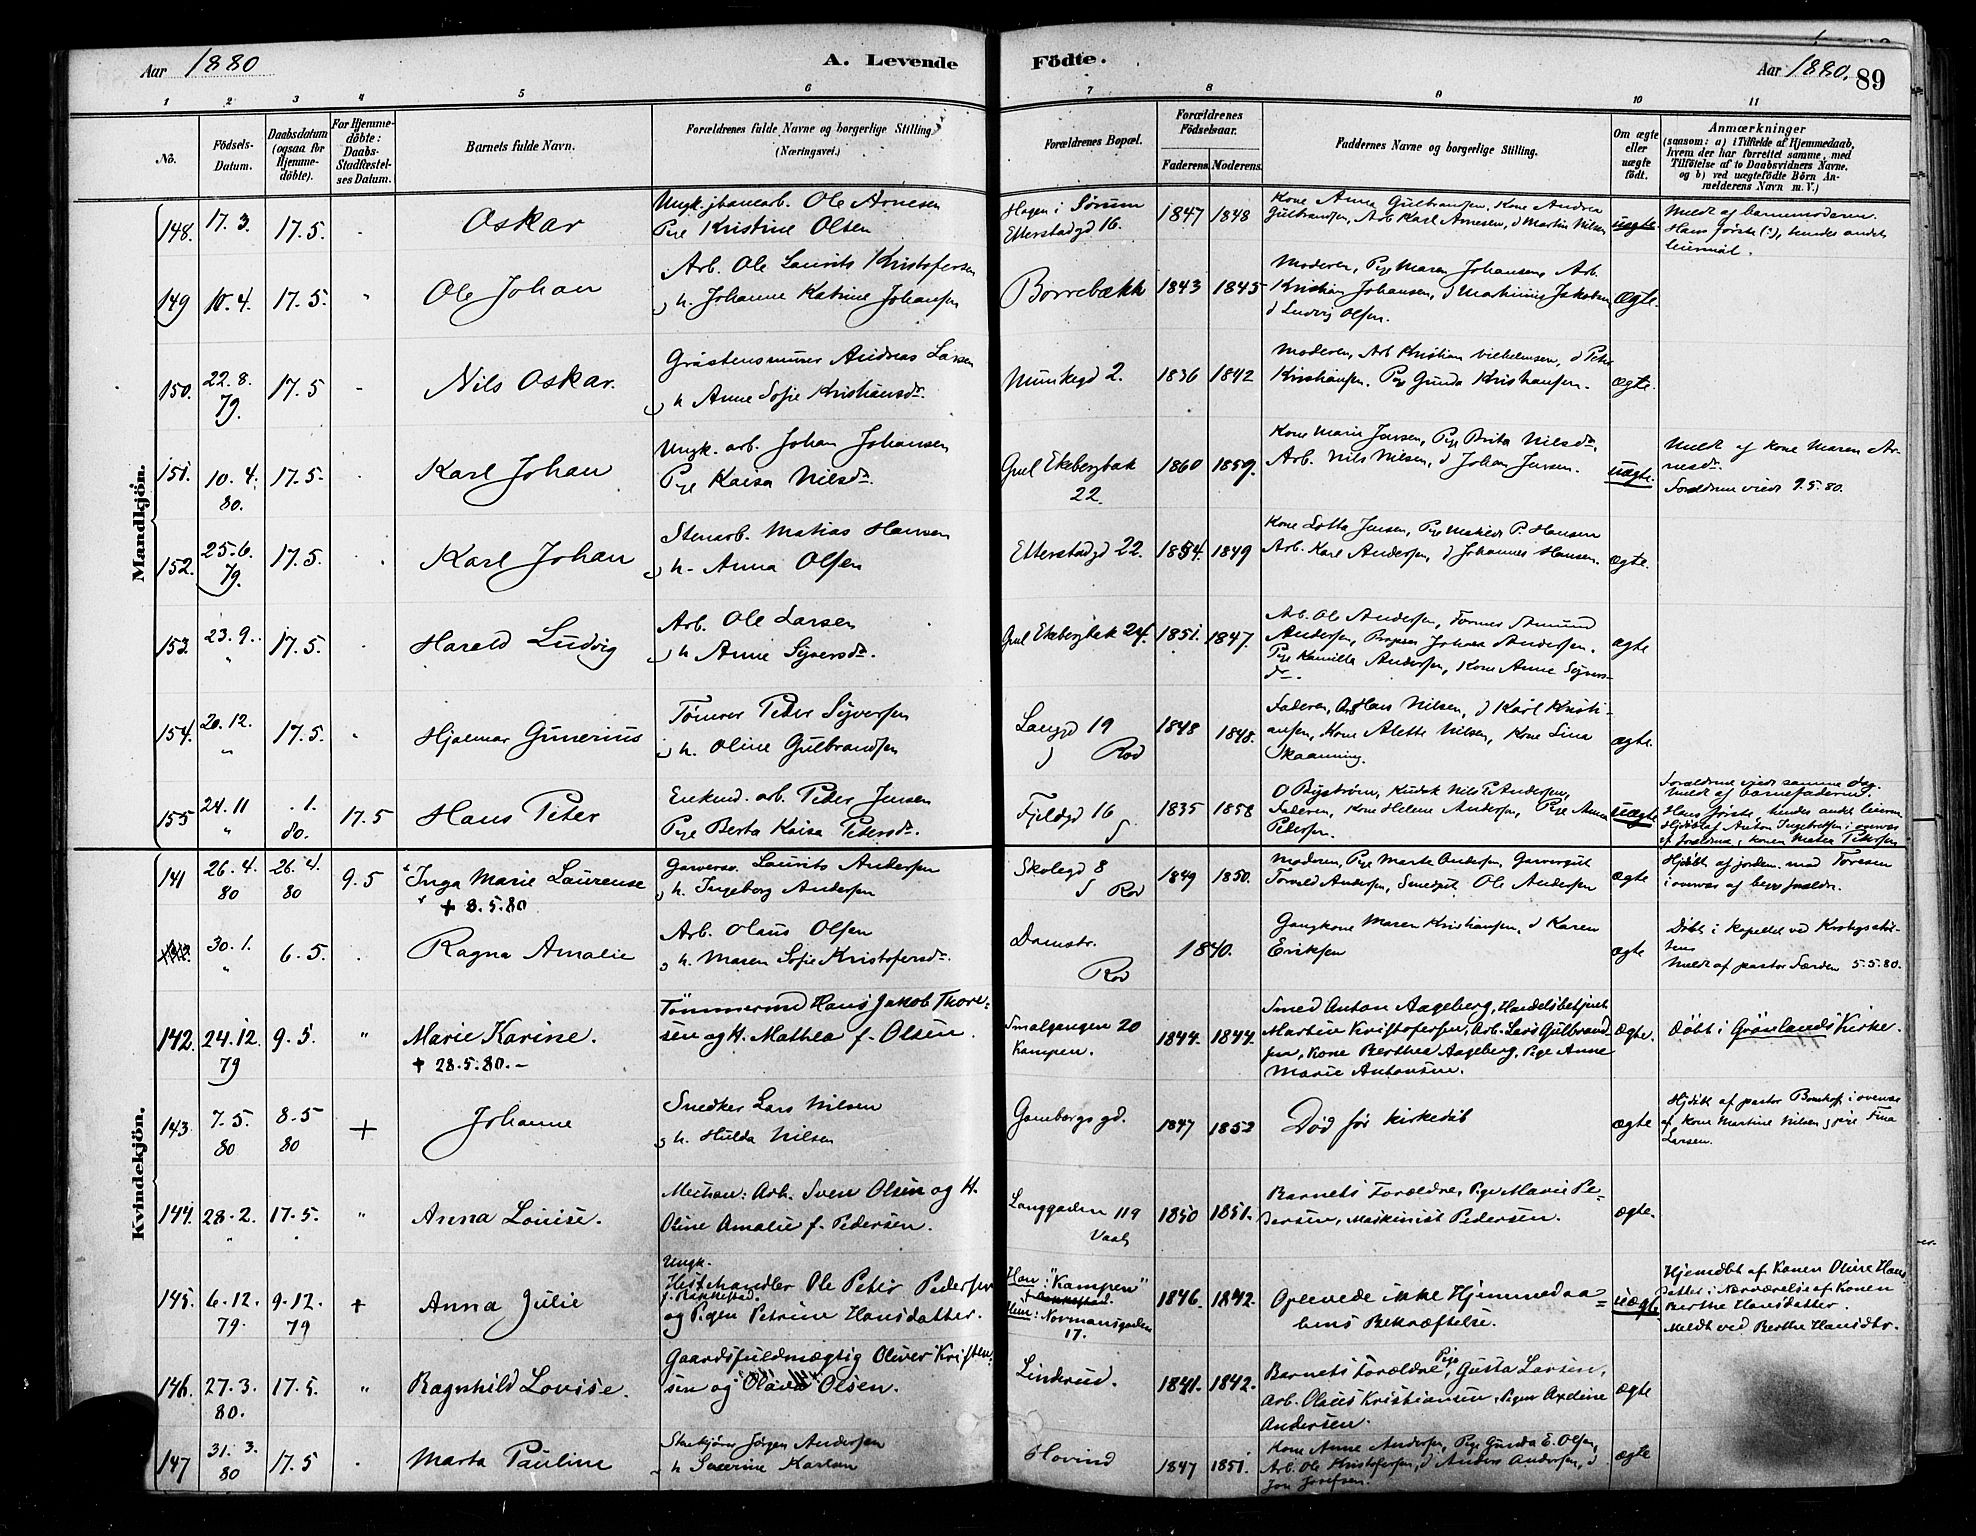 Aar 1880
A. Levende
Födte.
Aar 1880.
89
1 2 3 4 5 6 7 8 9 10 11
No.
Födsels-
Datum.
Daabsdatum
(ogsaa for
Hjemme-
döbte).
For Hjemme-
döbte:
Daabs-
Stadfæstel-
ses Datum.
Barnets fulde Navn.
Forældrenes fulde Navne og borgerlige Stilling
(Næringsvei.)
Forældrenes Bopæl.
Forældrenes
Födselsaar.
Faderens. Moderens.
Faddernes Navne og borgerlige Stilling.
Om ægte
eller
uægte
födt.
Anmærkninger
(saasom: a) i Tilfælde af Hjemmedaab,
hvem der har forrettet samme, med
Tilföielse af to Daabsvidners Navne.
og b) ved uægtefödte Börn An-
melderens Navn m. V.)
Mandkjön.
148. 17.3. 17.5. Oskar
Ungk. jbanearb. Ole Arnesen
Pge Kristine Olsen
Hagen i Sörum
Etterstadgd 16.
1847 1848
Kone Anna Gulbransen, Kone Andrea
Gulbransen, Arb Karl Arnesen, d Martin Nilsen
uægte
Meldt af barnemoderen.
Hans første (?), hendes andet
leiermål.
149 10.4. 17.5. Ole Johan
Arb. Ole Laurits Kristofersen
h. Johanne Katrine Johansen
Borrebækk
1843 1845
Moderen, Pge Maren Johansen, Arb.
Kristian Johansen, d Martinius Jakobsen
d Ludvig Olsen.
ægte.
150. 22.8. 79. 17.5 Nils Oskar.
Gråstensmurer Andreas Larsen
h Anne Sofie Kristiansdr.
Munkegd 2.
1836 1842
Moderen, Arb Kristian Vilhelmsen, d Peter
Kristiansen. Pge Gunda Kristiansen.
ægte.
151. 10.4. 80. 17.5. Karl Johan
Ungk. arb. Johan Johansen
Pge Kaisa Nilsdr.
Gml Ekebergbak
22.
1860 1859.
Kone Marie Jensen, Pge Brita Nilsdr,
Arb. Nils Nilsen, d Johan Jensen.
uægte.
Meldt af kone Maren Ar-
nesdr.
Forældrene viede 9.5.80.
152. 25.6. 79. 17.5. Karl Johan
Stenarb. Matias Hansen
h. Anna Olsen
Etterstadgd 22.
1854. 1849
Kone Lotta Jensen, Pge Matilde P. Hansen
Arb. Karl Andersen, d Johannes Hansen.
ægte.
153. 23.9. " 17.5. Harald Ludvig
Arb. Ole Larsen
h Anne Syversdr.
Gml Ekebergbak 24.
1851. 1847.
Arb. Ole Andersen, Former Amund
Andersen, Johan Andersen.
Pge Kamilla Andersen, Kone Anne Syvers-
dr.
ægte
154. 20.12. " 17.5. Hjalmar Gunerius
Tömrer Peder Syversen
h. Oline Gulbrandsen
Langgd 19
Rod
1848 1848.
Faderen, Arb Hans Nilsen, d Karl Kristi-
ansen, Kone Alette Nilsen, Kone Lina
Skaanning.
ægte.
155 24.11 " .1. 80. 17.5 Hans Peter
Enkemd. arb. Peter Jensen
Pge Berta Kaisa Petersdr.
Fjeldgd 16
1835 1858
O Byström, Kudsk Nils P. Andersen,
Faderen, Kone Helene Andersen, Pge Anna
Pedersen.
uægte
Forældrene viede samme dag.
Meldt af barnefaderen.
Hans første, hendes andet leierm
Hjdöbt af Anton Ingebretsen i overvær
af forældrene, konen Maria Petersen
Kvindekjön.
141 26.4. 80 26.4 80 9.5 Inga Marie Laurense
+ 8.5.80
Laurits Andersen
h. Ingeborg Andersen
Skolegd 8
Rod
1849 1850.
Moderen, Pge Marte Andersen, Garversv.
Torvald Andersen, Ole Andersen
ægte
Hjdöbt af jordem. mad Toresen
i overvær af begge foreldr.
30.1. " 6.5. Ragna Amalie
Arb. Olaus Olsen
h. Maren Sofie Kristofersdr.
Damstr.
Rod
1840.
Gangkone Maren Kristiansen, d Karen
Eriksen
ægte
Döbt i kapellet ved
Meldt af pastor Færden 5.5.80.
142. 24.12. 79 9.5. " Marie Karine.
+ 28.5.80.-
Tömmermd Hans Jakob Thore-
sen og H. Mathea f. Olsen.
Smalgangen 20
Kampen.
1844. 1844.
Smed Anton Aageberg, Handelsbetjent
Martin Kristofersen, Arb. Lars Gulbrand-
sen, Kone Berthea Aageberg, Pige Anne
Marie Antonsen.
ægte.
döbt i Grönlands Kirke.
143. 7.5. 80 8.5 80 + Johanne
Snedker Lars Nilsen
h. Hulda Nilsen
Ganeborgs gd.
1847 1852
Död før kirkedåb
ægte
Hjdöbt af pastor i overvær
af, Kone Martine Nilsen, pige Fina
Larsen.
144. 28.2. " 17.5. " Anna Louise.
Mechan: Arb. Sven Olsen og H.
Oline Amalie f. Pedersen.
Langgaden 119
Vaal
1850 1851.
Barnets Forældre, Pige Marie Pe-
dersen, Maskinist Pedersen.
ægte.
145. 6.12. 79. 9.12. 79 + Anna Julie
Ungk.
Hestehandler Ole Peter Pedersen
f. Rakkestad.
og Pigen Petrine Hansdatter.
Han: "Kampen"
Hun: Normansgaden
17.
1846. 1842.
Oplevede ikke Hjemmedaa-
bens Bekræftelse.
uægte
Hjemdöbt af Konen Oline Hans
datter i Nærværelse af Konen
Berthe Hansdatter.
Meldt ved Berthe Hansdtr.
146. 27.3. 80. 17.5. " Ragnhild Lovise.
Gaardsfuldmægtig Oliver Kristen-
sen og Olava Olsen.
Linderud.
1841. 1842.
Barnets Forældre, Pige Gusta Larsen,
Arb. Olaus Kristiansen, Pigen Axeline
Andersen.
ægte
147 31.3. 80 17.5 Marta Pauline
Jörgen Andersen
h Severine Karlsen
Hovind
1847 1851.
Kone Anne Andersen, Pge Gunda E. Olsen,
Arb. Ole Kristofersen, d Anders Andersen, d
Jon Josefsen.
ægte